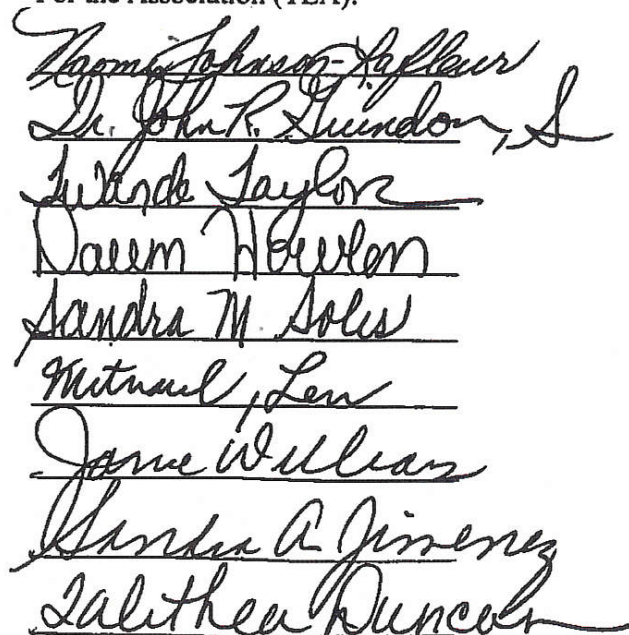 For the Association (TEA):
Naomi Johnson-Lafleur
Dr. John R. Guindon, S
Twanda Taylor
Howlen
Sandra M Solis
Janie Williams
Sandra A Jimenez
Talithea Duncan